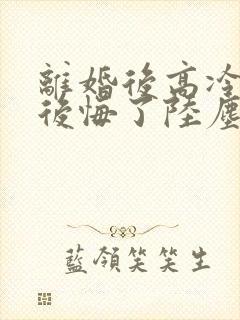 離婚後高冷
後悔了陸塵
藍領笑笑生